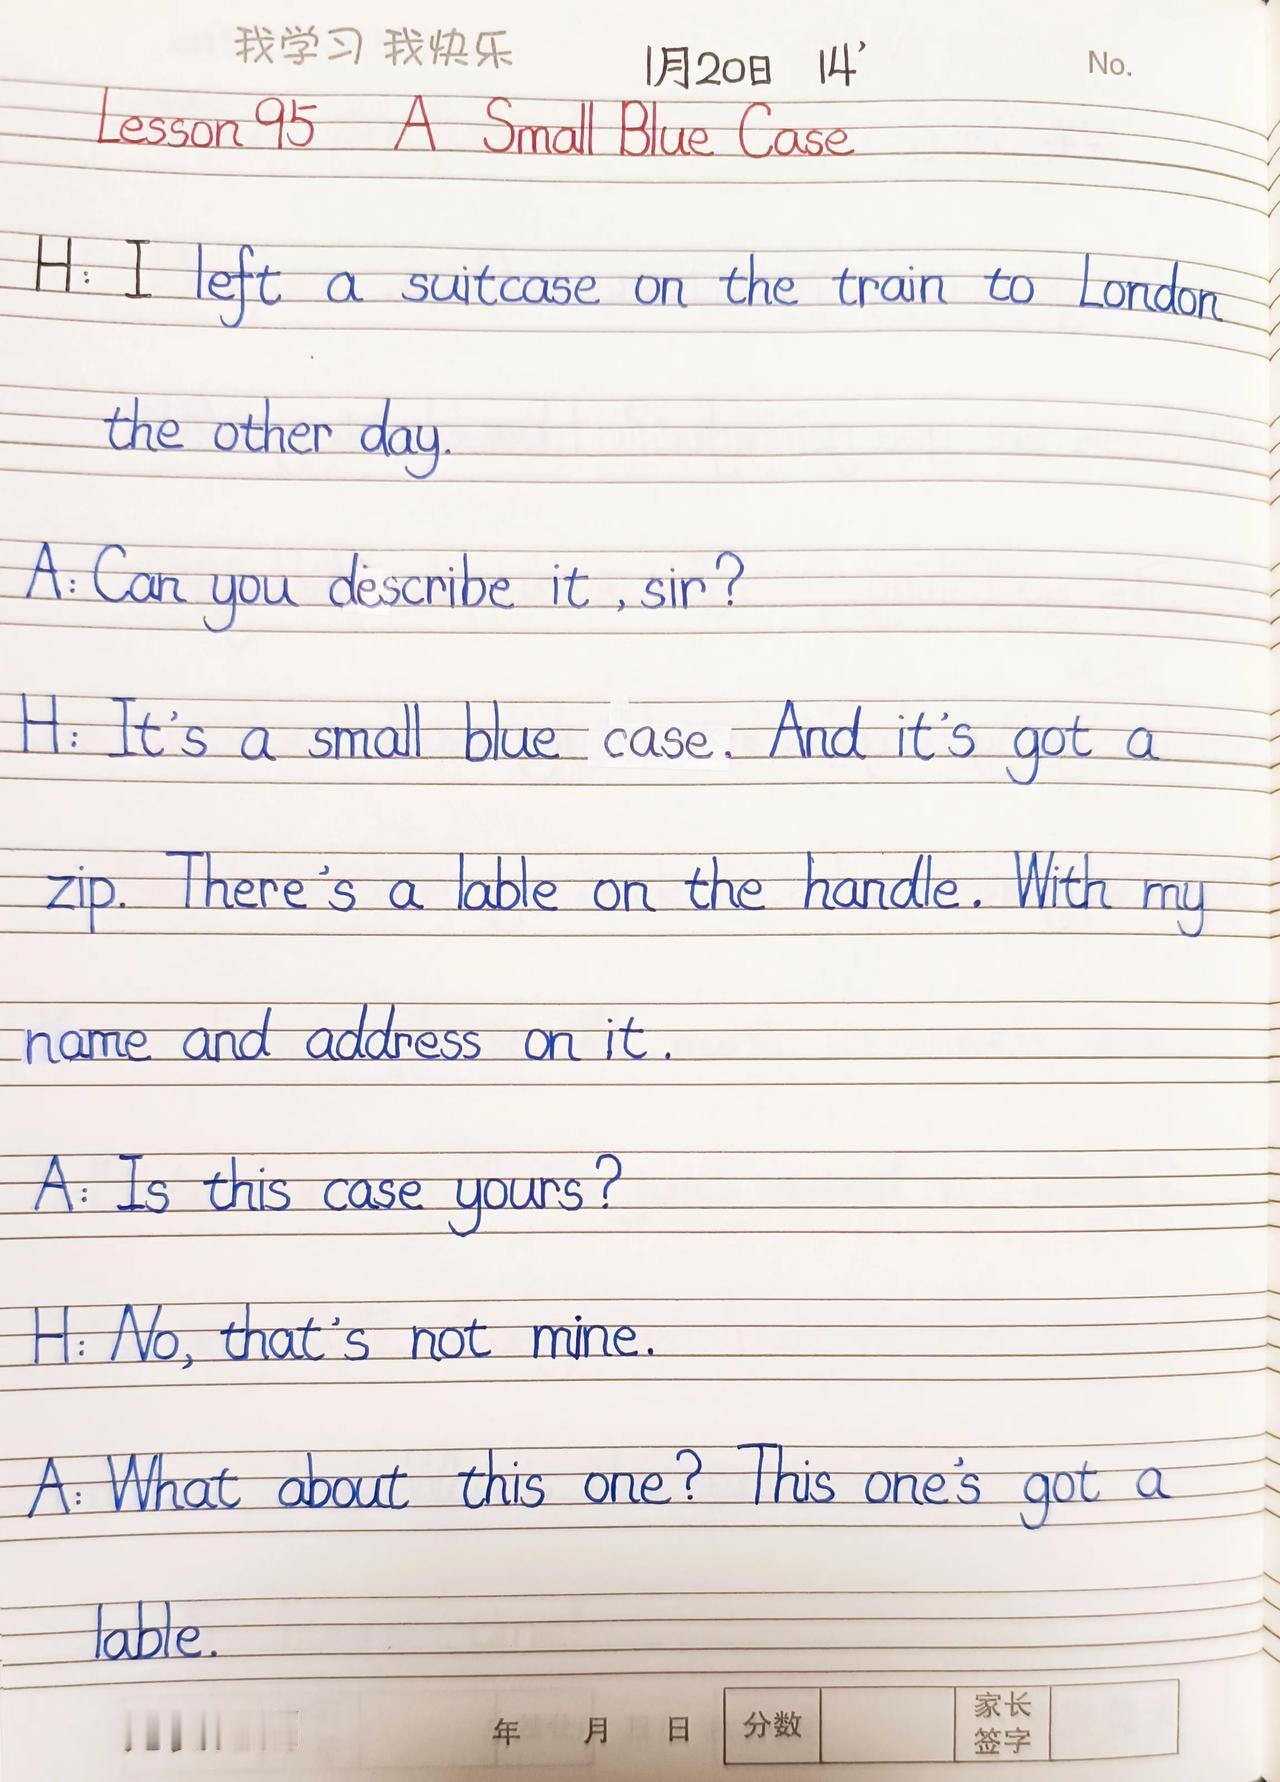 我学习 我快乐 1月20日 14' No.
Lesson 95 A Small Blue Case
H: I left a suitcase on the train to London
the other day.
A: Can you describe it, sir?
H: It's a small blue case. And it's got a
zip. There's a lable on the handle. With my
name and address on it.
A: Is this case yours?
H: No, that's not mine.
A: What about this one? This one's got a
lable.
年 月 日 分数 家长签字